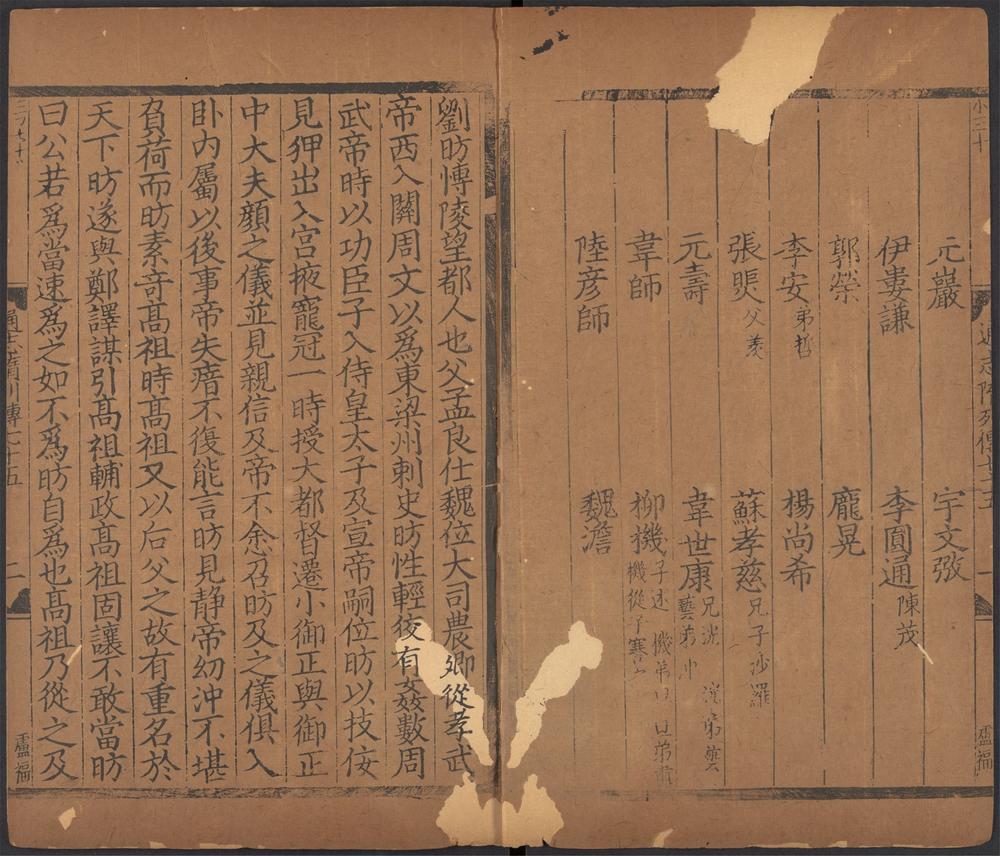 元巖 宇文㢸
伊婁謙 李圓通 陳茂
郭榮 龐晃
李安 弟哲 楊尚希
張煚 父羨 蘇孝慈 兄子沙羅
元壽 韋世康 兄洸 藝弟冲
韋師 柳機 子述 機弟 機從子謇之
陸彦師 魏澹
劉昉慱陵望都人也父孟良仕魏位大司農卿從孝武
帝西入關周文以爲東梁州刺史昉性輕狡有姦數周
武帝時以功臣子入侍皇太子及宣帝嗣位昉以技佞
見狎出入宫掖寵冠一時授大都督遷小御正與御正
中大夫顔之儀並見親信及帝不悆召昉及之儀俱入
卧内屬以後事帝失瘖不復能言昉見静帝幼沖不堪
負荷而昉素竒髙祖時髙祖又以后父之故有重名於
天下昉遂與鄭譯謀引髙祖輔政髙祖固讓不敢當昉
曰公若爲當速爲之如不爲昉自爲也髙祖乃從之及
通志列傳七十五
二
盧福